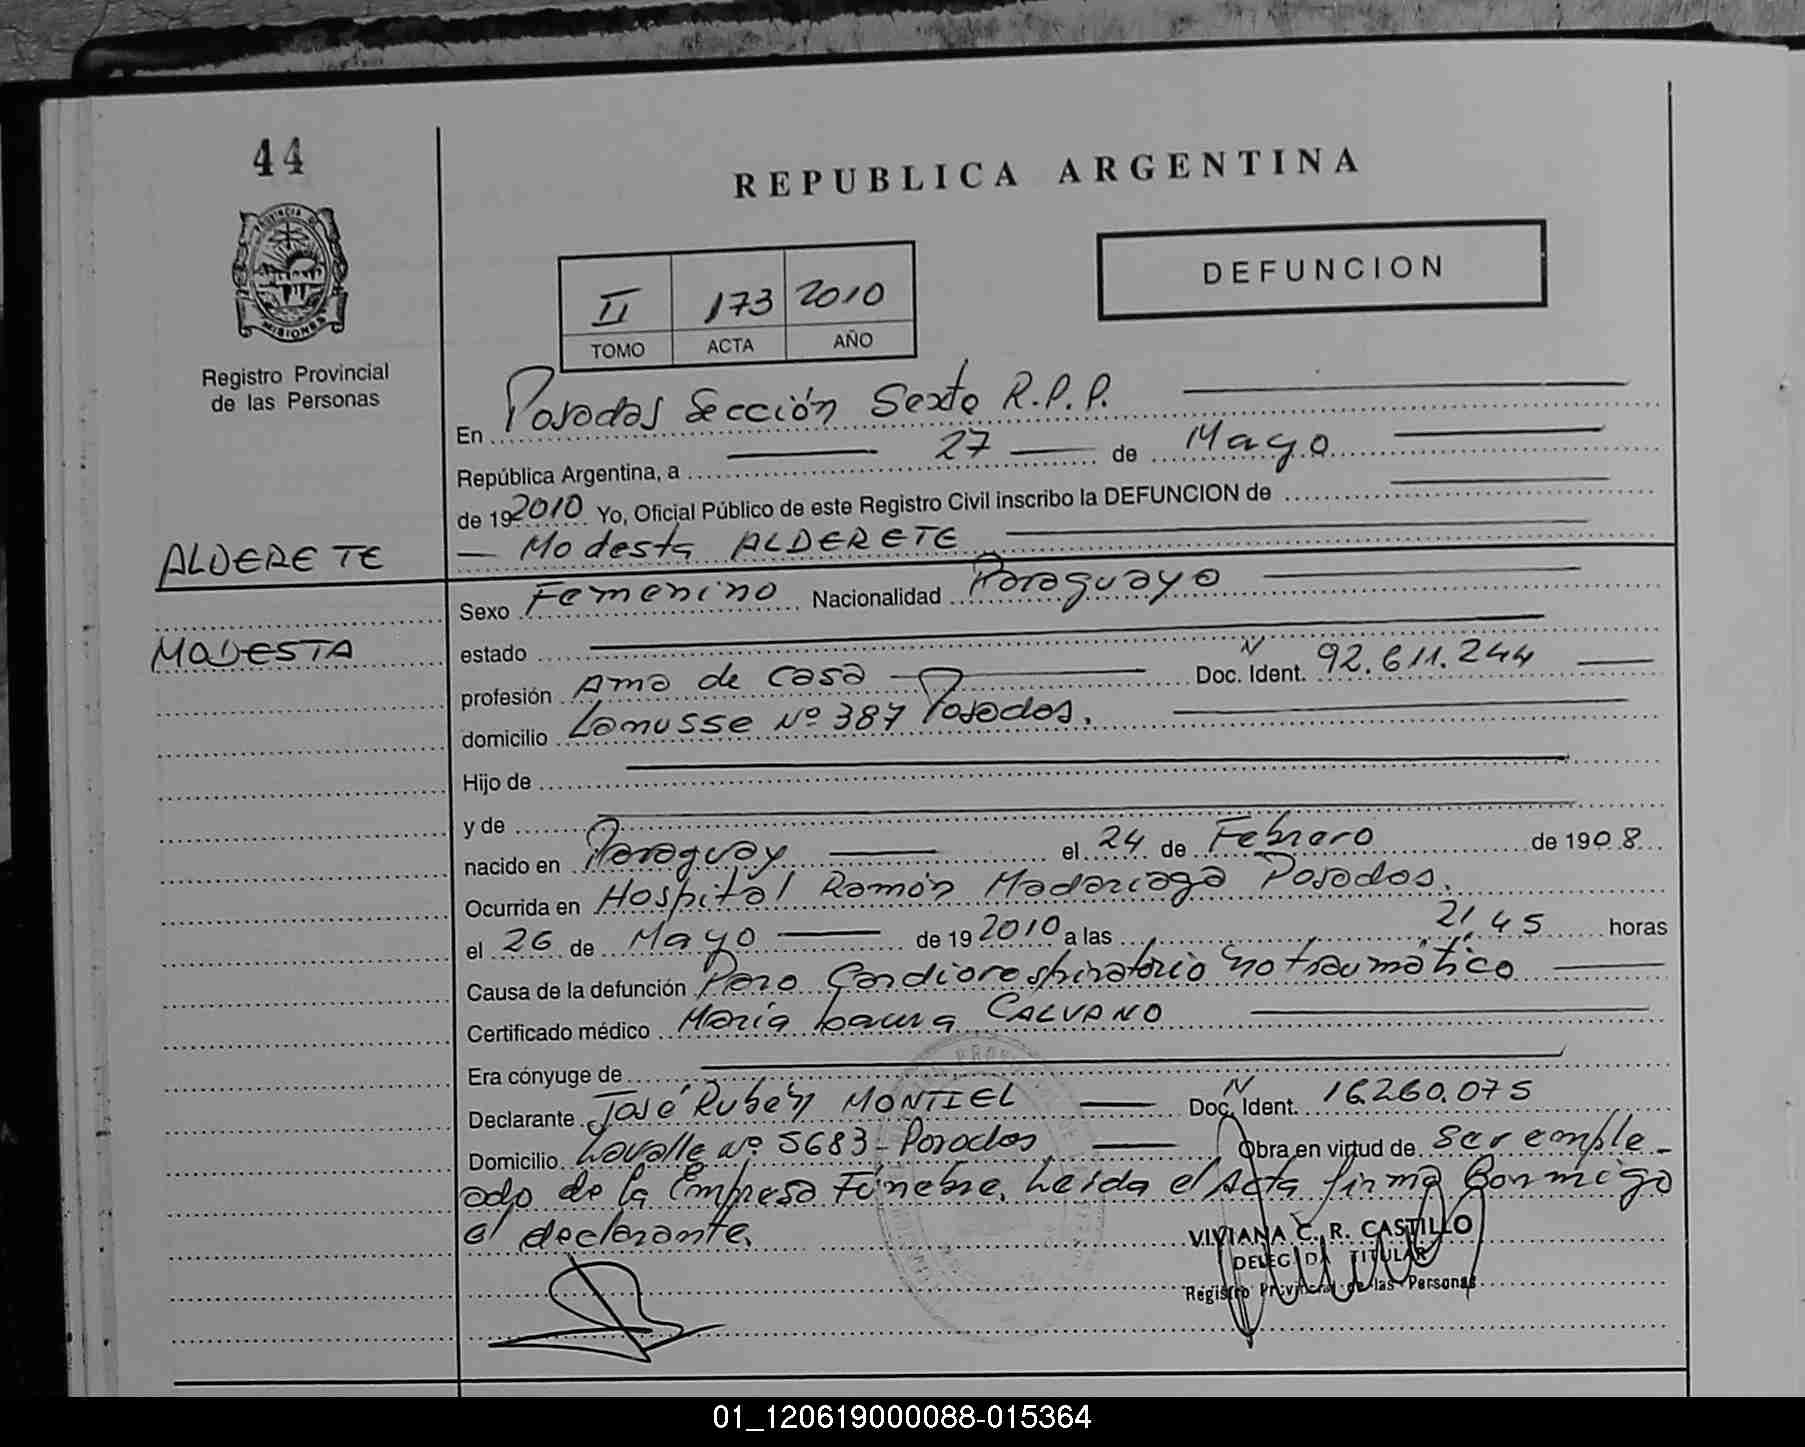 44
REPUBLICA ARGENTINA
PROVINCIA D
MISIONES
Registro Provincial
de las Personas
DEFUNCION
II 173 2010
TOMO ACTA AÑO
En Posadas Sección Sexta R.P.P.
República Argentina, a 27 de Mayo
de 19 2010 Yo, Oficial Público de este Registro Civil inscribo la DEFUNCION de
Modesta ALDERETE
ALDERETE
Sexo Femenino Nacionalidad Paraguaya
MODESTA
estado
profesión Ama de casa Doc. Ident. N 92.611.244
domicilio Lanusse Nº 387 Posadas.
Hijo de
y de
nacido en Paraguay el 24 de Febrero de 1908
Ocurrida en Hospital Ramón Madariaga Posadas.
el 26 de Mayo de 19 2010 a las 21,45 horas
Causa de la defunción Paro Cardiorespiratorio no traumático
Certificado médico María Laura CALVANO
Era cónyuge de
Declarante José Rubén MONTIEL Doc. Ident. N 16.260.075
Domicilio Lavalle Nº 5683 - Posadas Obra en virtud de ser emple-
ado de la Empresa Fúnebre. Leída el Acta firma Conmigo
el declarante.
VIVIANA C. R. CASTILLO
DELEGADA TITULAR
Registro Provincial de las Personas
01_120619000088-015364